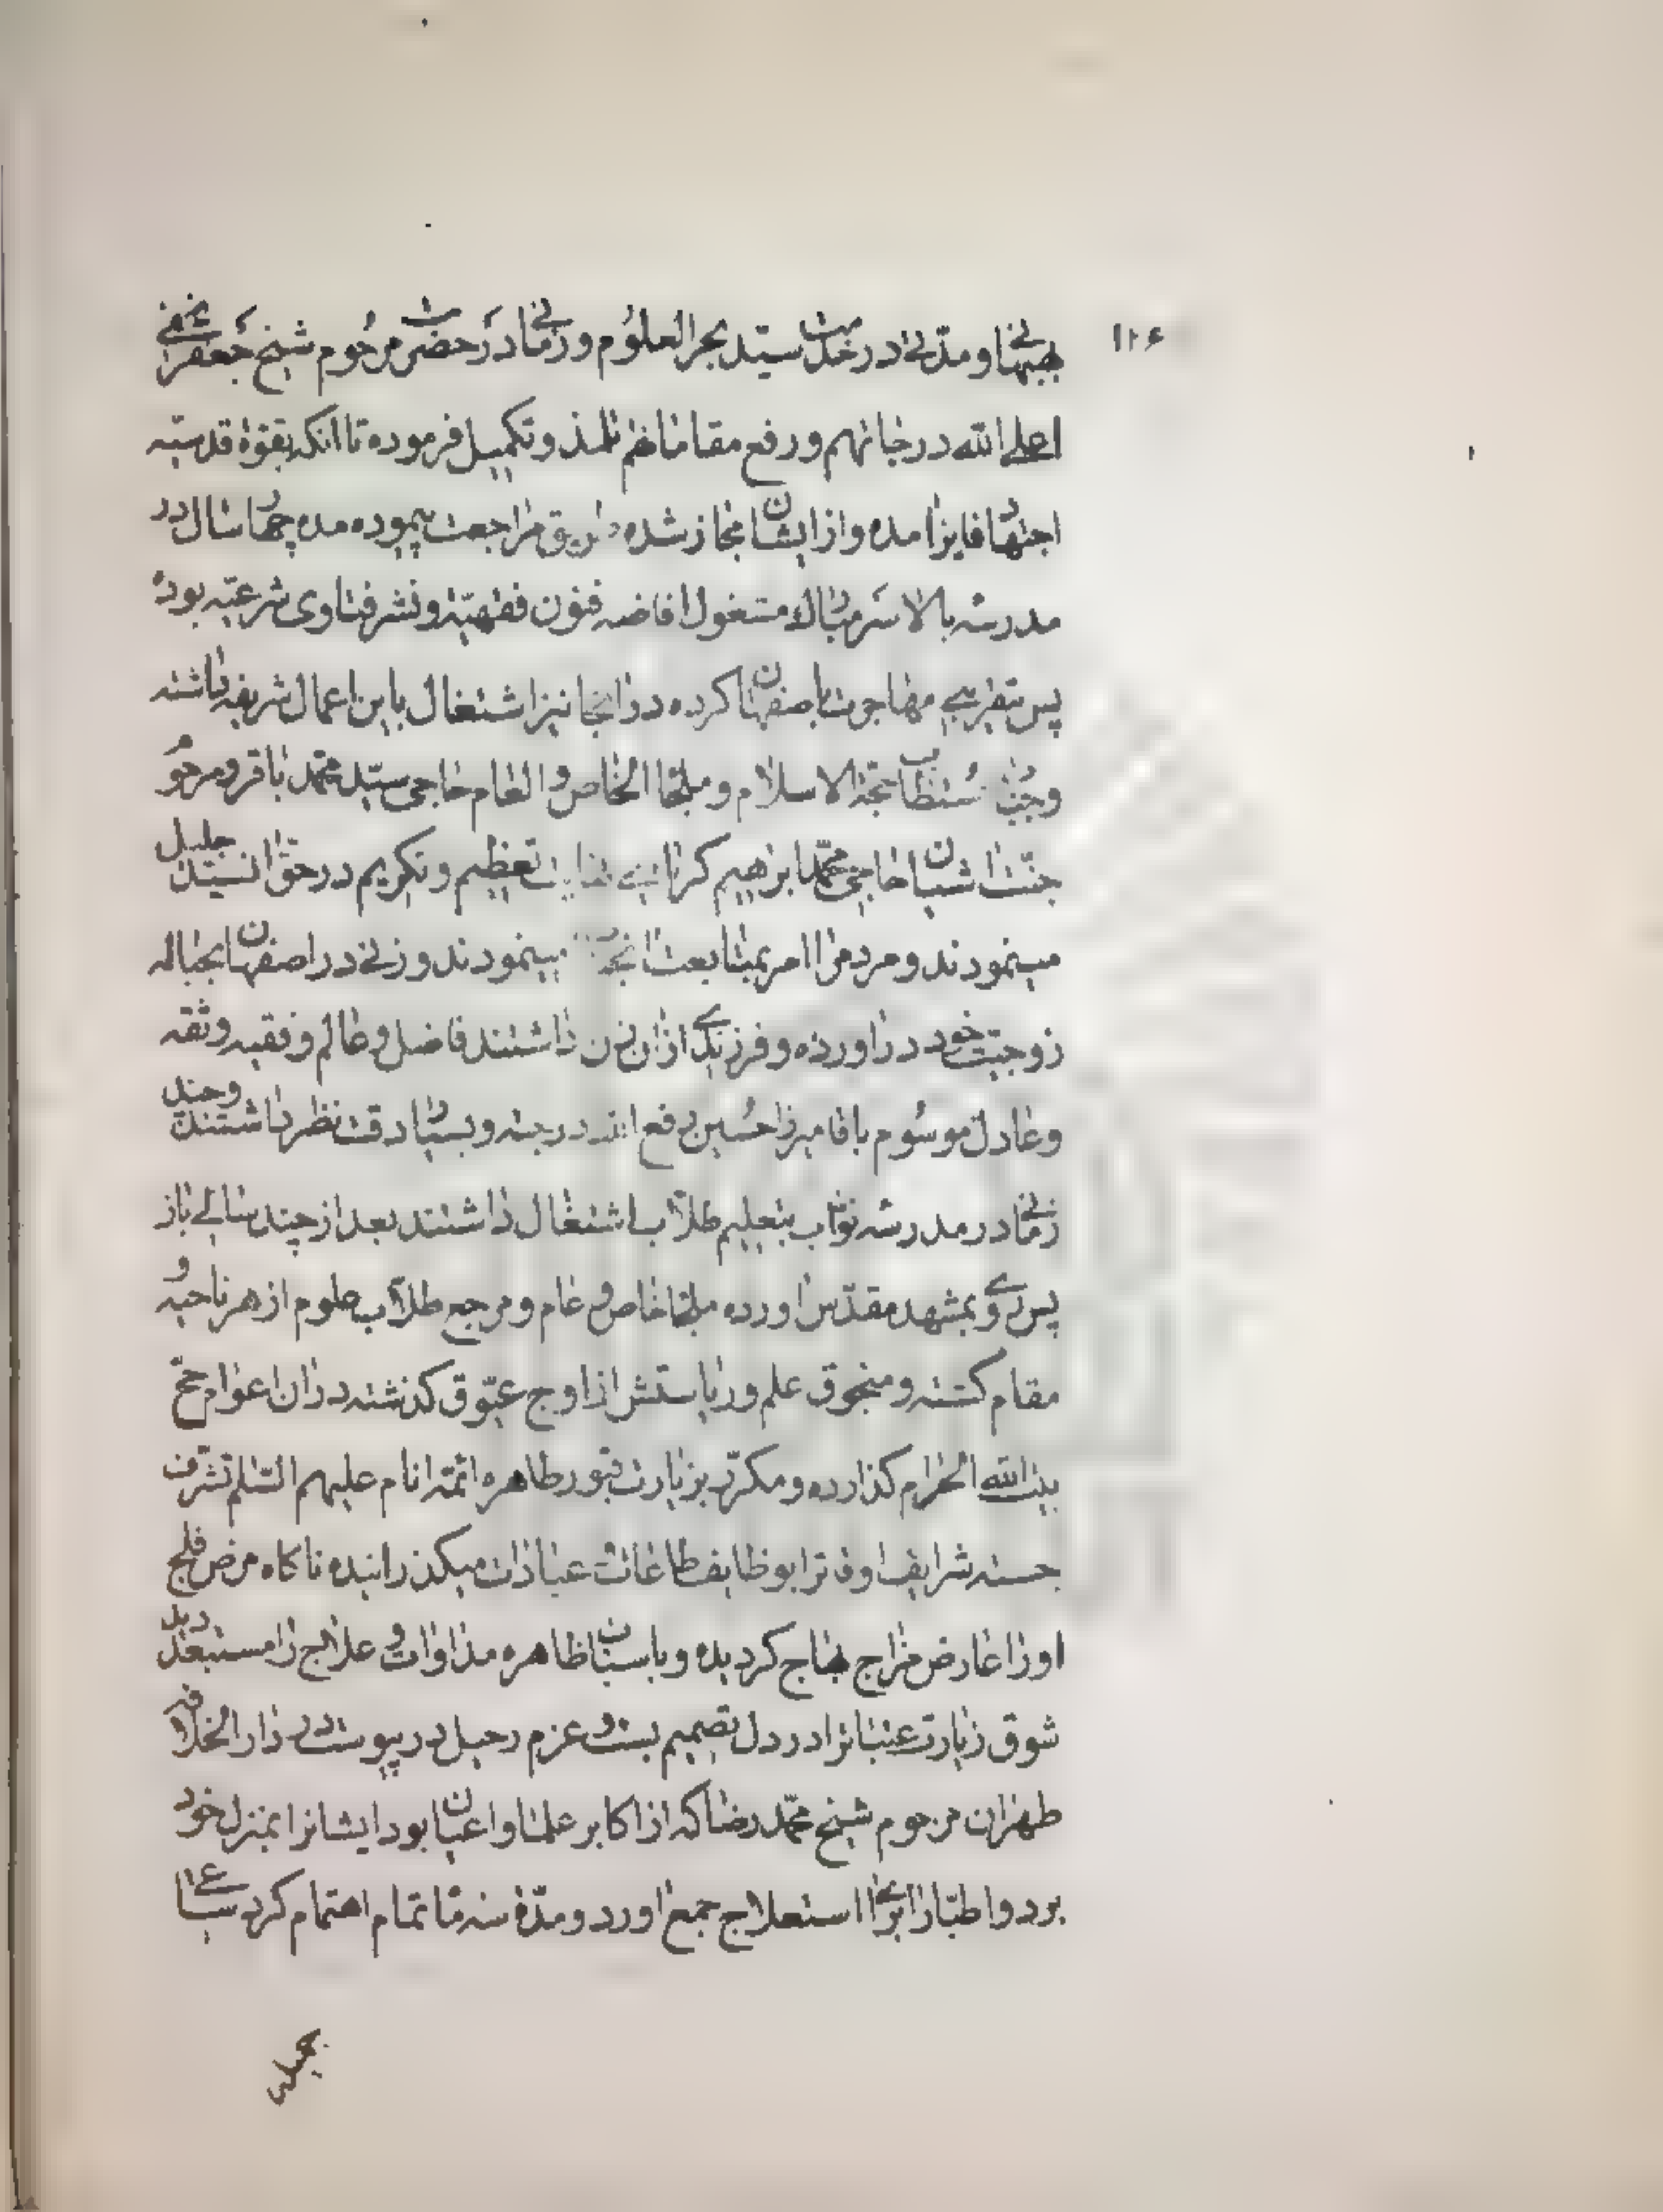 ۱۱۶
بهبهانی و مدتی در خدمت سید بحر العلوم و زمانی در حضرت مرحوم شیخ جعفر نجفی
اعلی الله درجاتهم و رفع مقاماتهم تلمذ و تکمیل فرموده تا انکه بقوۀ قدسیه
اجتهاد فایز امده و از ایشان مجاز شده طریق مراجعت پیموده مده چهار سال در
مدرسه بالا سر مبارك مشغول افاضه فنون فقهیّه و نشر فتاوی شرعیّه بوده
پس بتقریبی مهاجرت باصفهان کرده در انجا نیز اشتغال باین اعمال شریفه داشته
و جناب مستطاب حجة الاسلام و ملجا الخاص و العام حاجی سیّد محمد باقر و مرحوم
جنّت اشیان حاجی محمّد ابرهیم کرباسی غایت تعظیم و تکریم در حق ان سید جلیل
مینمودند و مردم را امر بمتابعت انجناب مینمودند و زنی در اصفهان بحباله
زوجیت خود در اورده و فرزندی از ان زن داشتند فاضل و عالم و فقیه و ثقه
و عادل موسوم باقا میرزا حسین رفع الله درجته و بسیار دقت نظر داشتند و چندی
زمانی در مدرسه نوّاب بتعلیم طلّاب اشتغال داشتند بعد از چند سالی باز
پس روی بمشهد مقدّس اورده ملجا خاص و عام و مرجع طلّاب علوم از هر ناحیه و
مقام کشته و منجوق علم و ریاستش از اوج عیّوق کذشته در ان اعوام حج
بیت الله الحرام کذارده و مکرّر بزیارت قبور طاهره ائمّه انام علیهم السّلم تشرف
جسته شرایف اوقاترا بوظایف طاعات و عبادات میکذرانیده ناکاه مرض فلج
او را عارض مزاج بهاج کردیده و باسباب ظاهره مداوات و علاج را مستبعد دید
شوق زیارت عتباترا در دل تصمیم بست و عزم رحیل در پیوست در دار الخلافه
طهران مرحوم شیخ محمّد رضا که از اکابر علما و اعیان بود ایشانرا بمنزل خود
برد و اطبّا را برای استعلاج جمع اورد و مدّة سه ماه تمام اهتمام کرد سباعی
جمیله